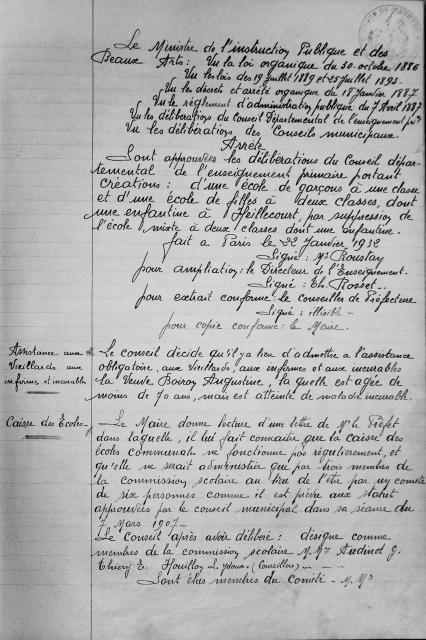 Le Ministre de l'instruction Publique et des
Beaux Arts : Vu la loi organique du 30 octobre 1886
Vu les lois des 19 juillet 1889 et 25 juillet 1893.
Vu les décrets et arrêté organique du 18 janvier 1887.
Vu le règlement d'administration publique du 7 Avril 1887
Vu les délibérations du Conseil Départemental de l'enseignement
Vu les délibérations des Conseils municipaux.
Arrête
Sont approuvées les délibérations du Conseil dépar-
temental de l'enseignement primaire portant
créations : d'une école de garçons à une classe
et d'une école de filles à deux classes, dont
une enfantine à Heillecourt, par suppression de
l'école mixte à deux classes dont une enfantine.
fait à Paris le 22 Janvier 1932
Signé : Mr Roustan
pour ampliation : le Directeur de l'Enseignement.
Signé : Th. Rosset.
pour extrait conforme : le conseiller de Préfecture
Signé : illisible -
pour copie conforme : le Maire.
Assistance aux
Vieillards aux
infirmes et incurables
Le conseil décide qu'il y a lieu d'admettre à l'assistance
obligatoire, aux Vieillards, aux infirmes et aux incurables
la Veuve Augustine, laquelle est agée de
moins de 70 ans, mais est atteinte de maladie incurable.
Caisse des Ecoles -
Le Maire donne lecture d'une lettre de Mr le Préfet
dans laquelle, il lui fait connaitre que la caisse des
écoles communales ne fonctionne pas régulièrement, et
qu'elle ne serait administrée que par trois membres de
la commission scolaire au lieu de l'être par un comité
de six personnes comme il est prévu aux statuts
approuvées par le conseil municipal dans sa séance du
7 Mars 1907 -
Le Conseil après avoir délibéré : désigne comme
membres de la commission scolaire M. Mrs Audinot G.
Thiery E. Houillon L. (Conseillers) -
Sont élus membres du Comité - M. Mrs